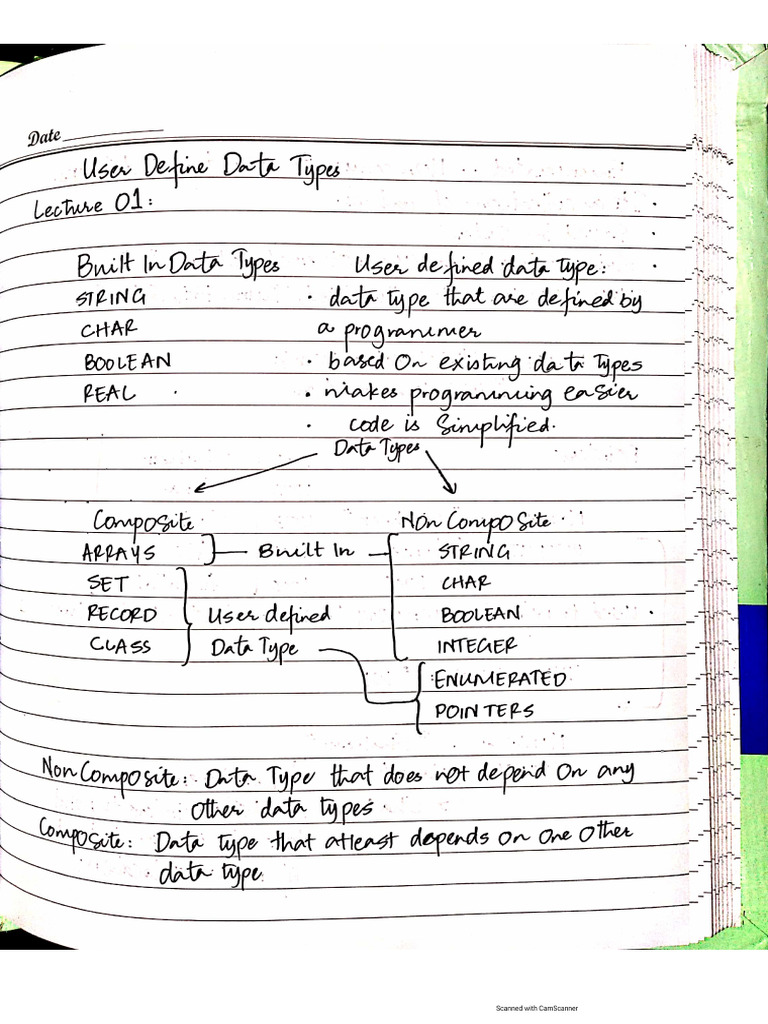 Date
User Define Data Types
Lecture 01:
Built In Data Types
User defined data type:
STRING
· data type that are defined by
CHAR
a programmer
BOOLEAN
· based on existing data types
REAL
· makes programming easier
· code is Simplified.
Data Types
Composite
Non Composite
ARRAYS
Built In
STRING
SET
CHAR
RECORD
User defined
BOOLEAN
CLASS
Data Type
INTEGER
ENUMERATED
POINTERS
Non Composite: Data Type that does not depend on any
other data types.
Composite: Data type that atleast depends on one other
data type.
Scanned with CamScanner